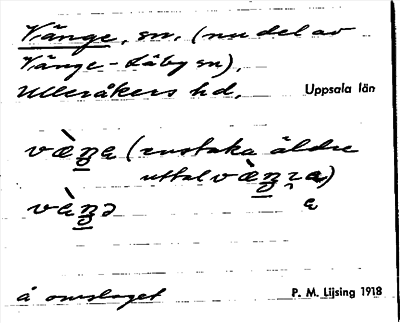 Vänge, sn. (nu del av
Vänge-Läby sn),
Ulleråkers hd.
Uppsala län
(enstaka äldre
uttal
å omslaget
P. M. Lijsing 1918